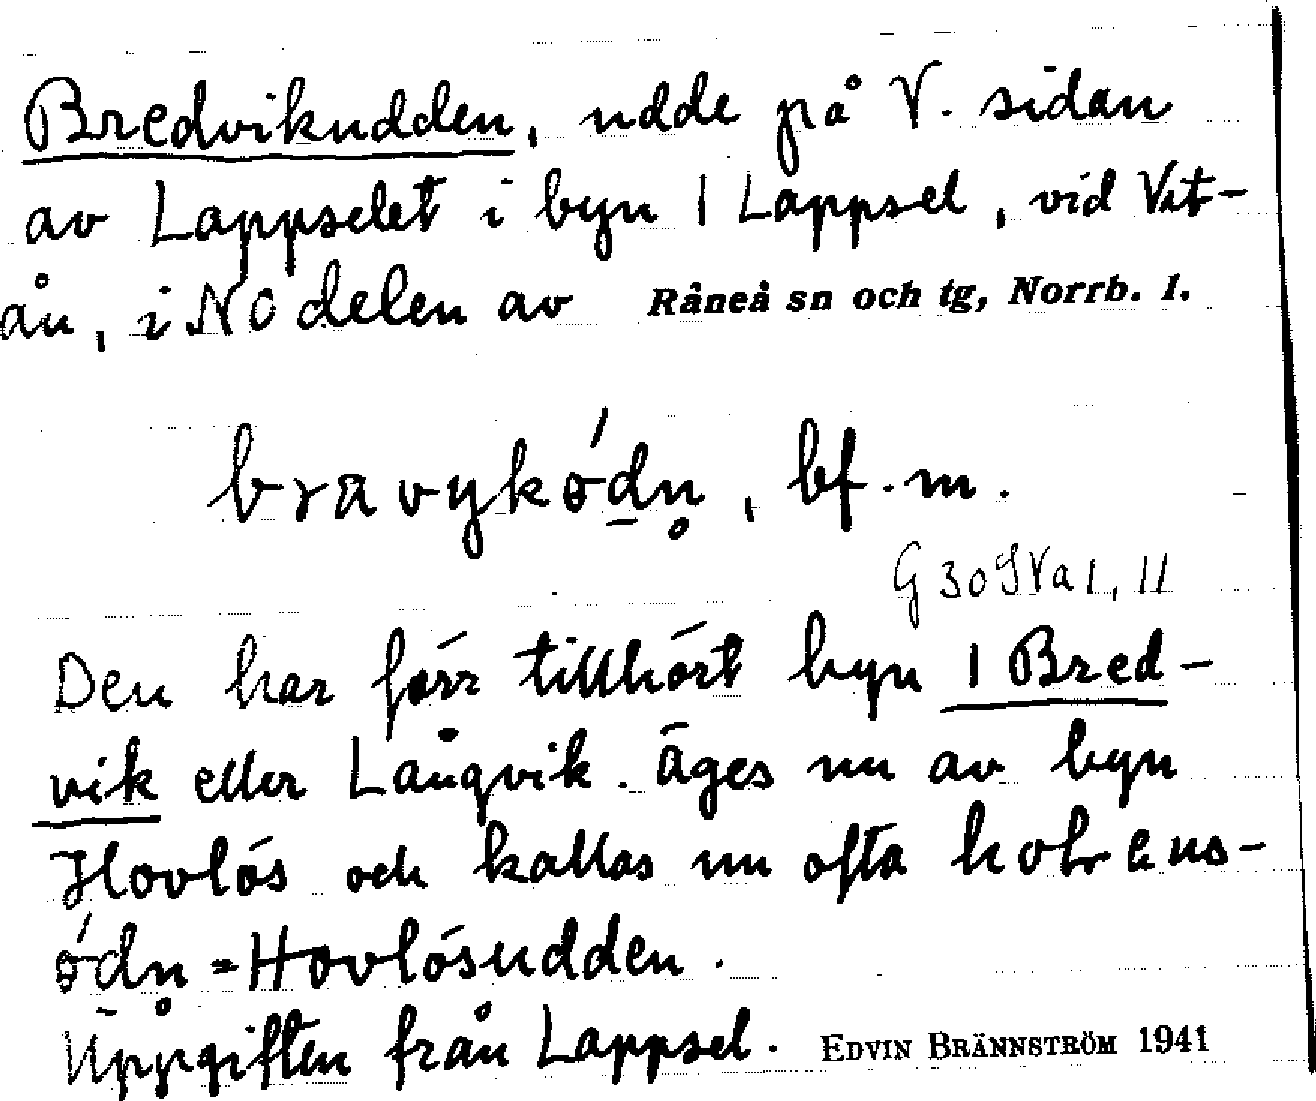 Bredvikudden, udde på V. sidan
av Lappselet i byn 1 Lappsel, vid Vit-
ån, i NO delen av Råneå sn och tg, Norrb. l.
bravykǿdn̥, bf. m.
G 30 SVa 1, 11
Den har förr tillhört byn 1 Bred-
vik eller Långvik. Äges nu av byn
Hovlös och kallas nu ofta
ǿdn̥ = Hovlösudden.
Uppgiften från Lappsel. EDVIN BRÄNNSTRÖM 1941